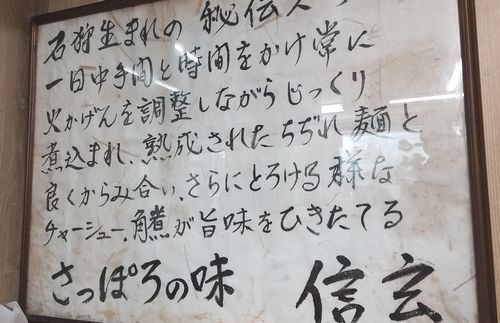 石狩生まれの 秘伝ス
一日中手間と時間をかけ常に
火かげんを調整しながらじっくり
煮込まれ、熟成されたちぢれ麺と
良くからみ合い、さらにとろける様な
チャーシュー、角煮が旨味をひきたてる
さっぽろの味 信玄